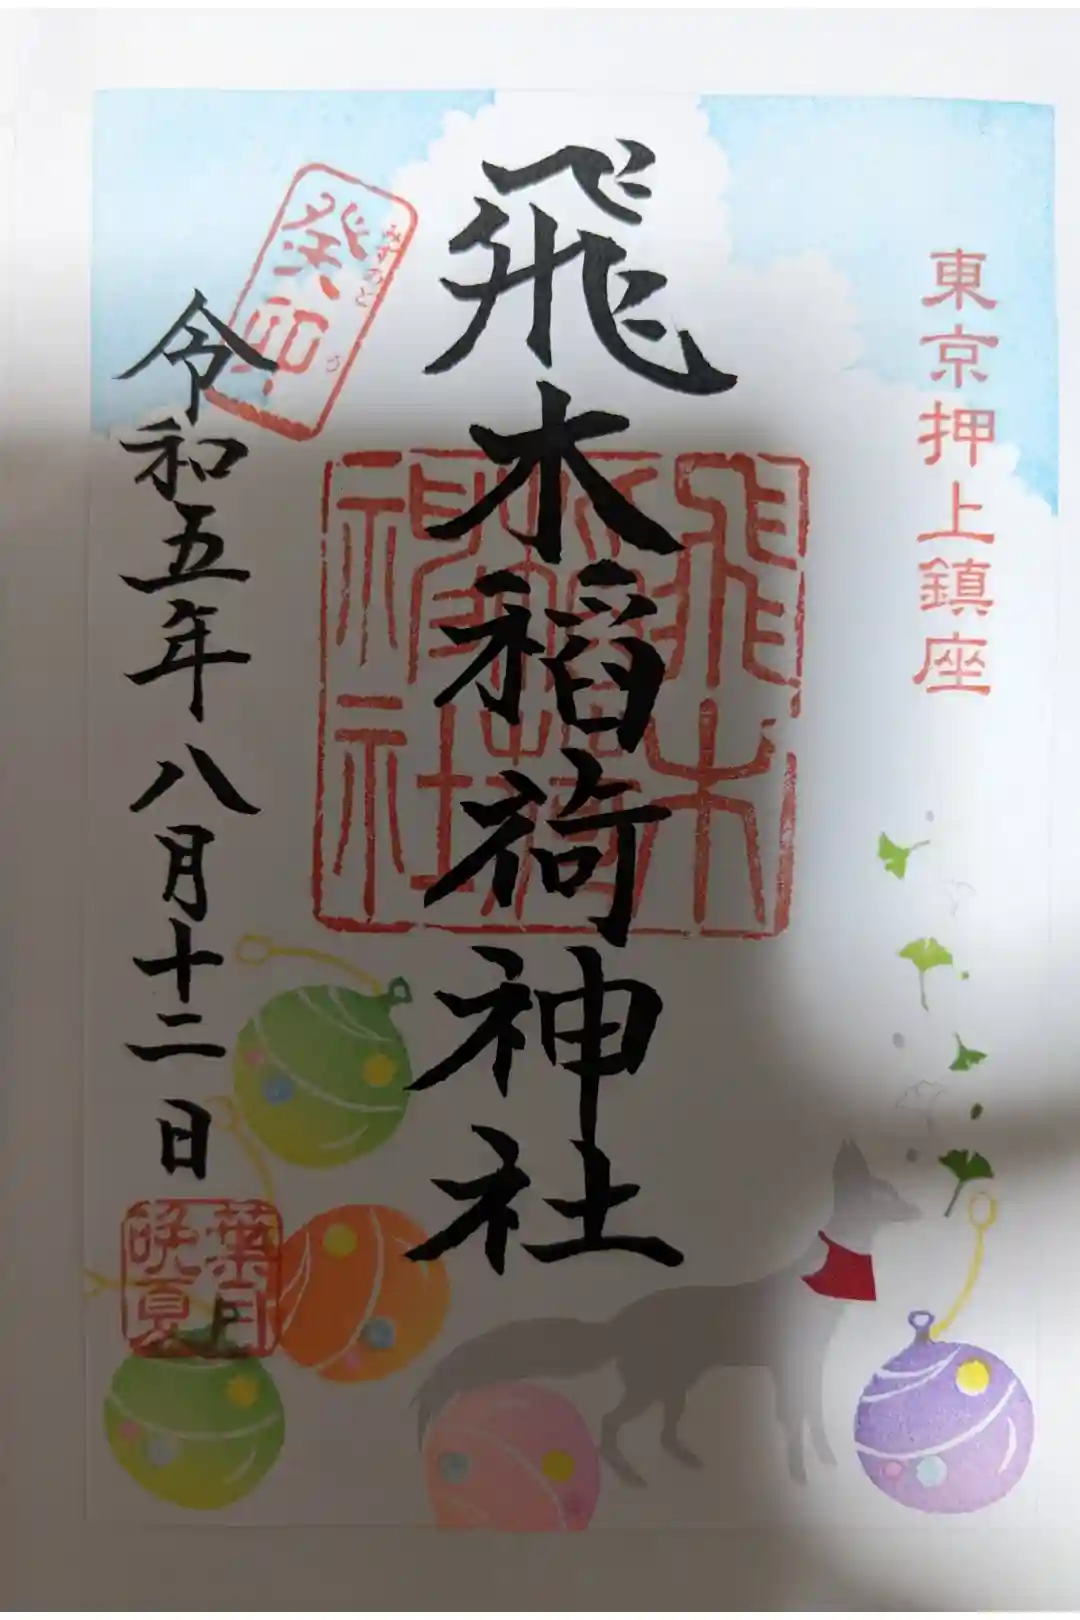 東京押上鎮座
飛木稲荷神社
飛木稲荷神社
癸卯
みずのと う
令和五年八月十二日
葉月
晩夏